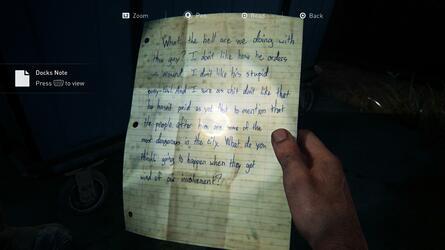 Zoom Pen Read Back
Docks Note
Press to view
What the hell are we doing with
this guy? I don't like how he orders
us around. I don't like his stupid
pony-tail. And I sure as shit don't like that
he hasn't paid us yet. Not to mention that
the people after him are some of the
most dangerous in the city. What do you
think's going to happen when they get
wind of our involvement?!